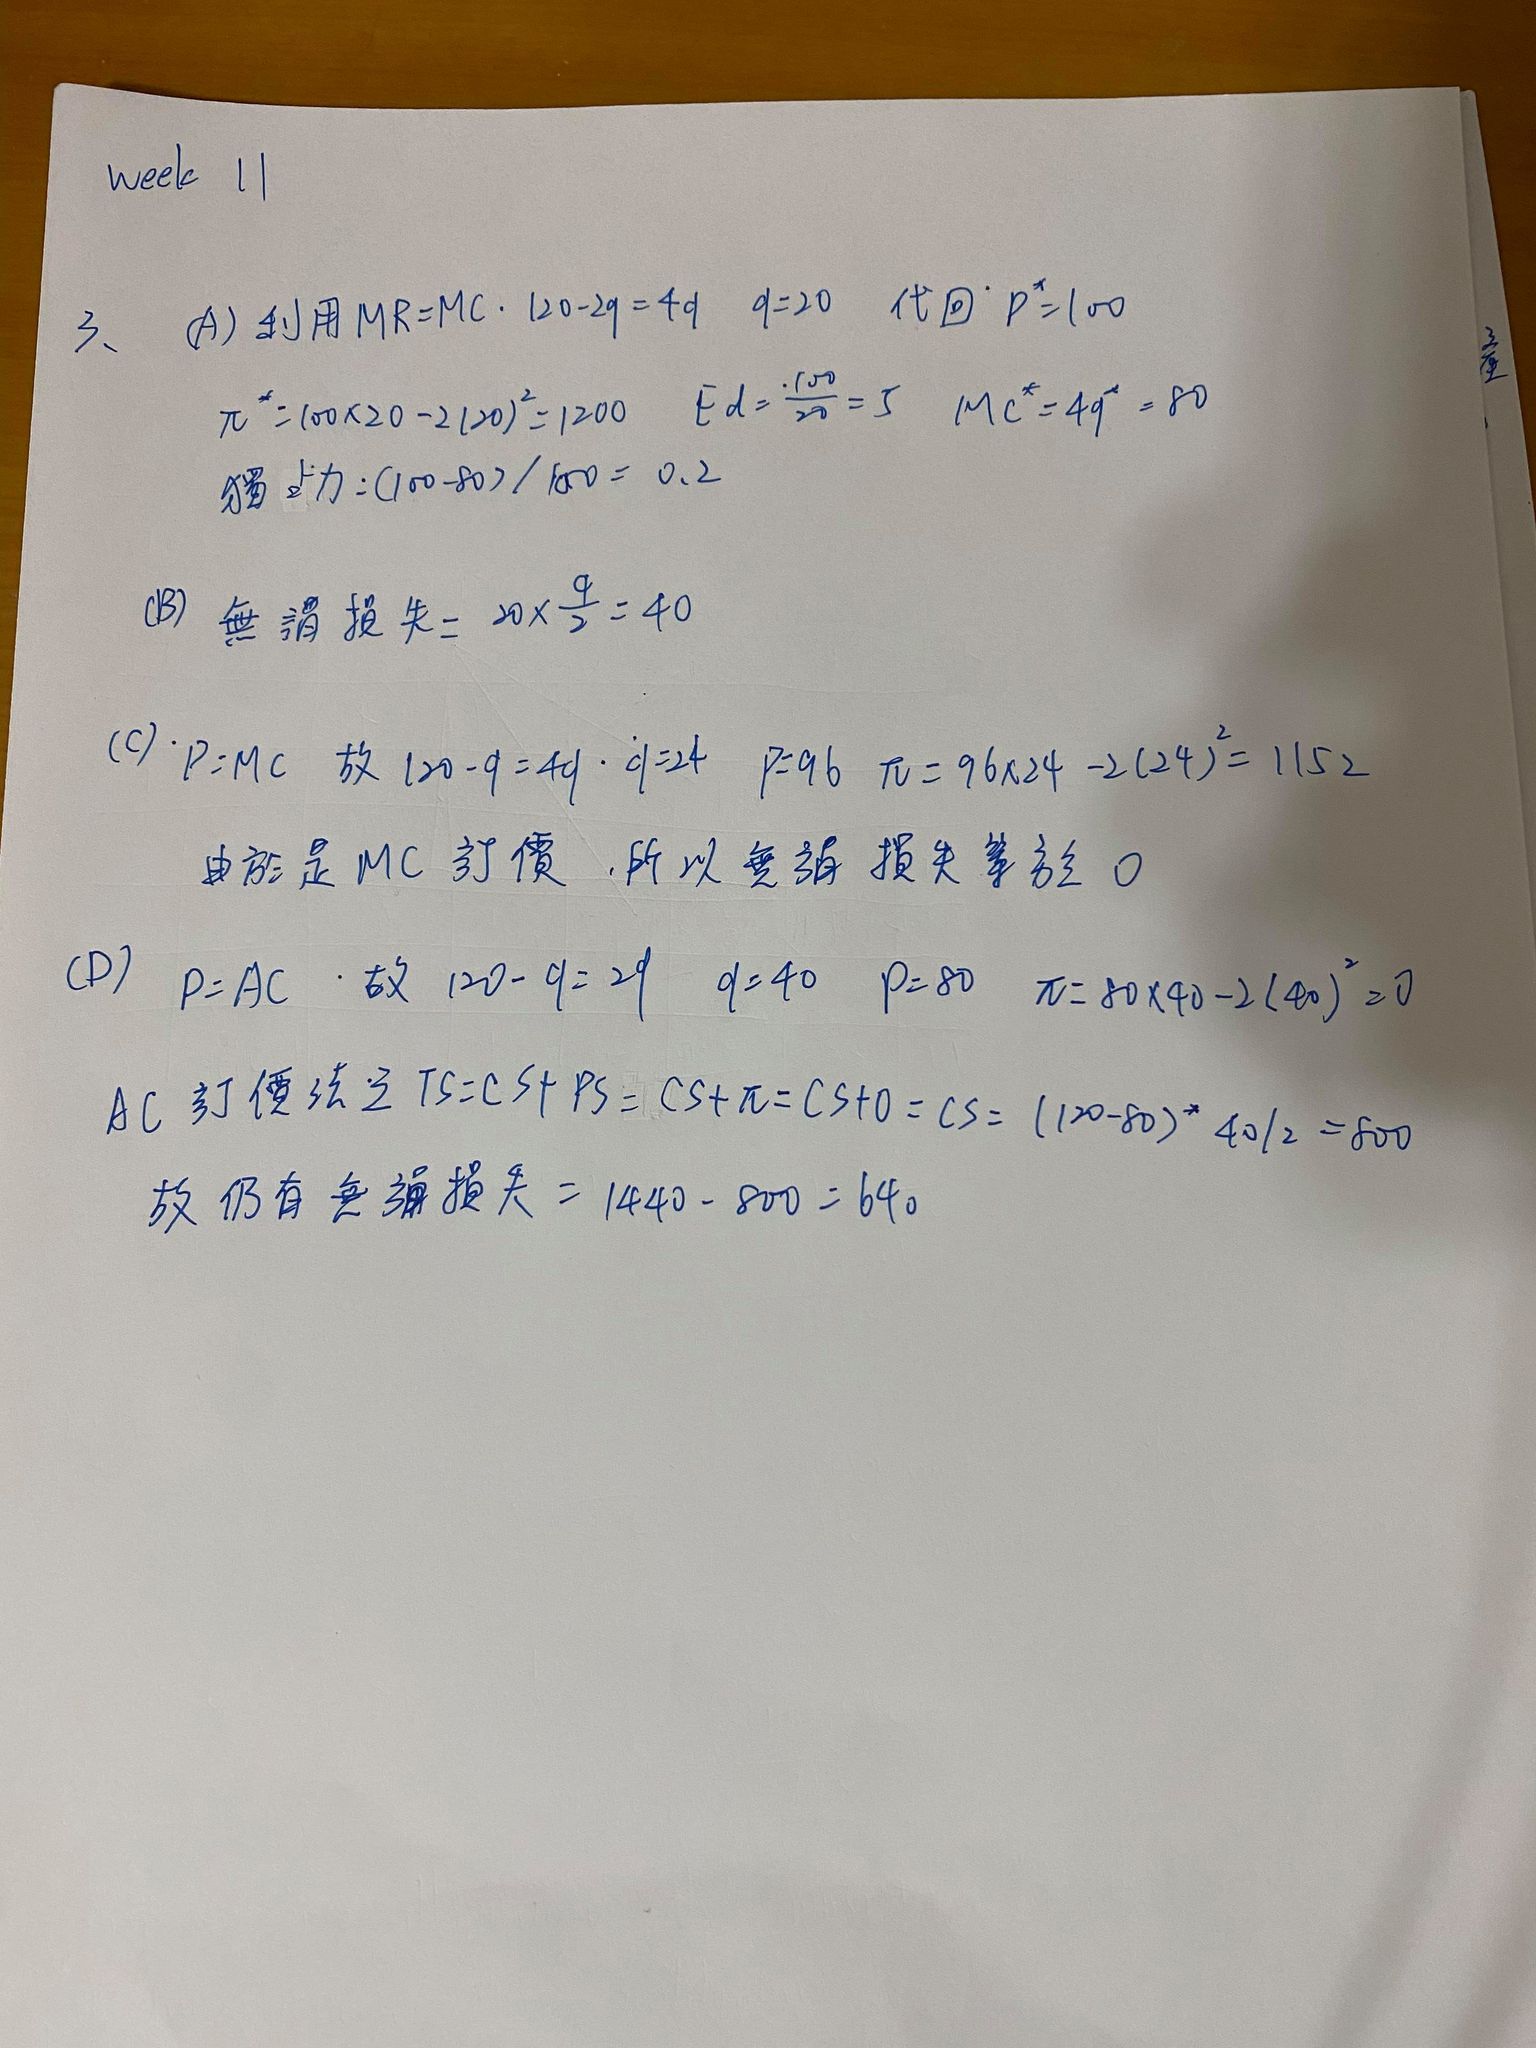 week 11
3、 (A) 利用MR=MC. 120-2q=4q q=20 代回. P*=100
π*=100×20-2(20)²=1200 Ed=100/20=5 MC*=4q*=80
獨占力:(100-80)/100=0.2
(B) 無謂損失=20×4/2=40
(C). P=MC 故 120-q=4q. q=24 P=96 π=96×24-2(24)²=1152
由於是MC訂價,所以無謂損失等於0
(D) P=AC .故 120-q=2q q=40 P=80 π=80×40-2(40)²=0
AC訂價法之TS=CS+PS=CS+π=CS+0=CS=(120-80)*40/2=800
故仍有無謂損失=1440-800=640